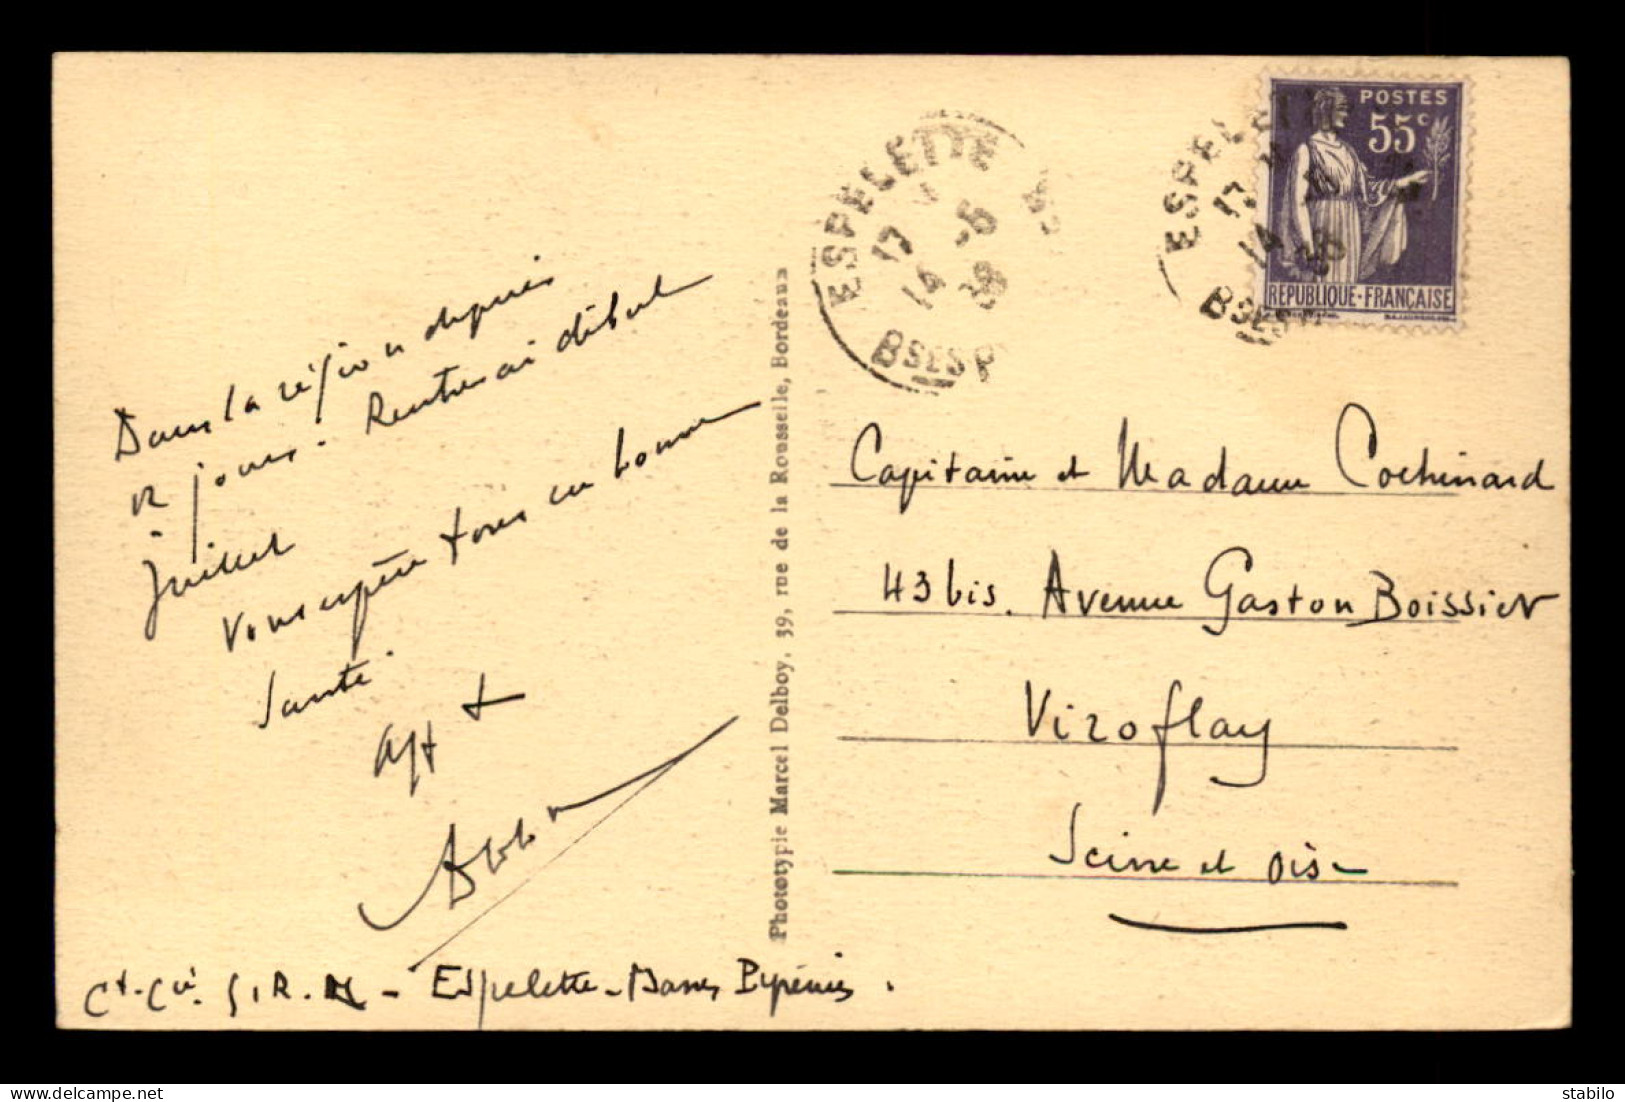 Dans la région depuis
12 jours. Rentrerai début
Juillet
Vous espère tous en bonne
Santé.
afft
Ct. Cié. S.R. - Espelette - Basses Pyrénées.
Phototypie Marcel Delboy, 39, rue de la Rousselle, Bordeaux
ESPELETTE
17
14 -5
38
BSES P
ESPEL
17
14
BSES
POSTES
55c
REPUBLIQUE·FRANÇAISE
Capitaine et Madame Cochinard
43 bis. Avenue Gaston Boissier
Viroflay
Seine et Oise
stabilo
delcampe.net